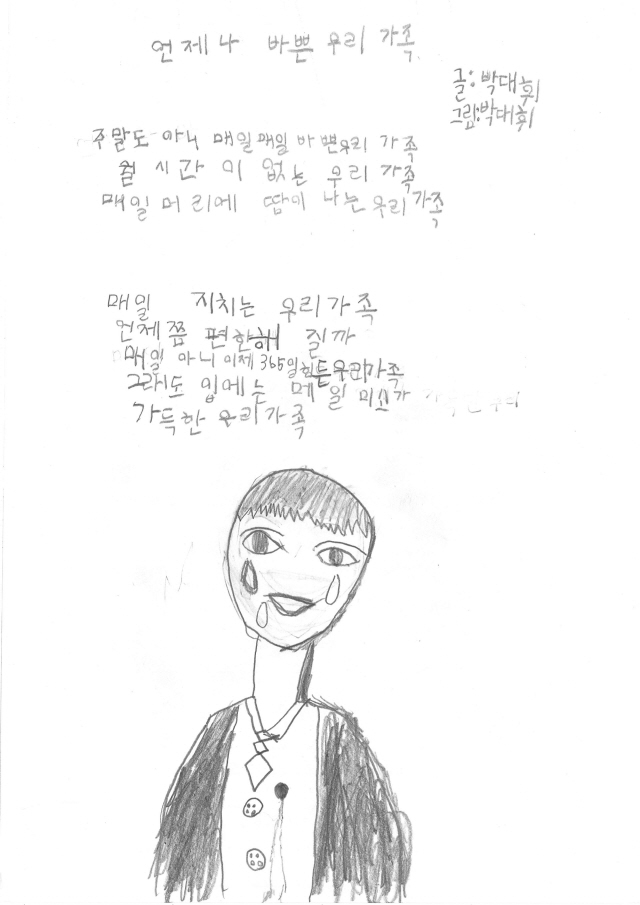 언제나 바쁜 우리 가족
글:박대휘
그림:박대휘
주말도 아니 매일매일 바쁜우리 가족
쉴 시간 이 없는 우리 가족
매일 머리에 땀이 나는 우리 가족
매일 지치는 우리가족
언제쯤 편한해 질까
매일 아니 이제 365일 힘든우리가족
그래도 입에는 메일 미소가
가득한 우리가족